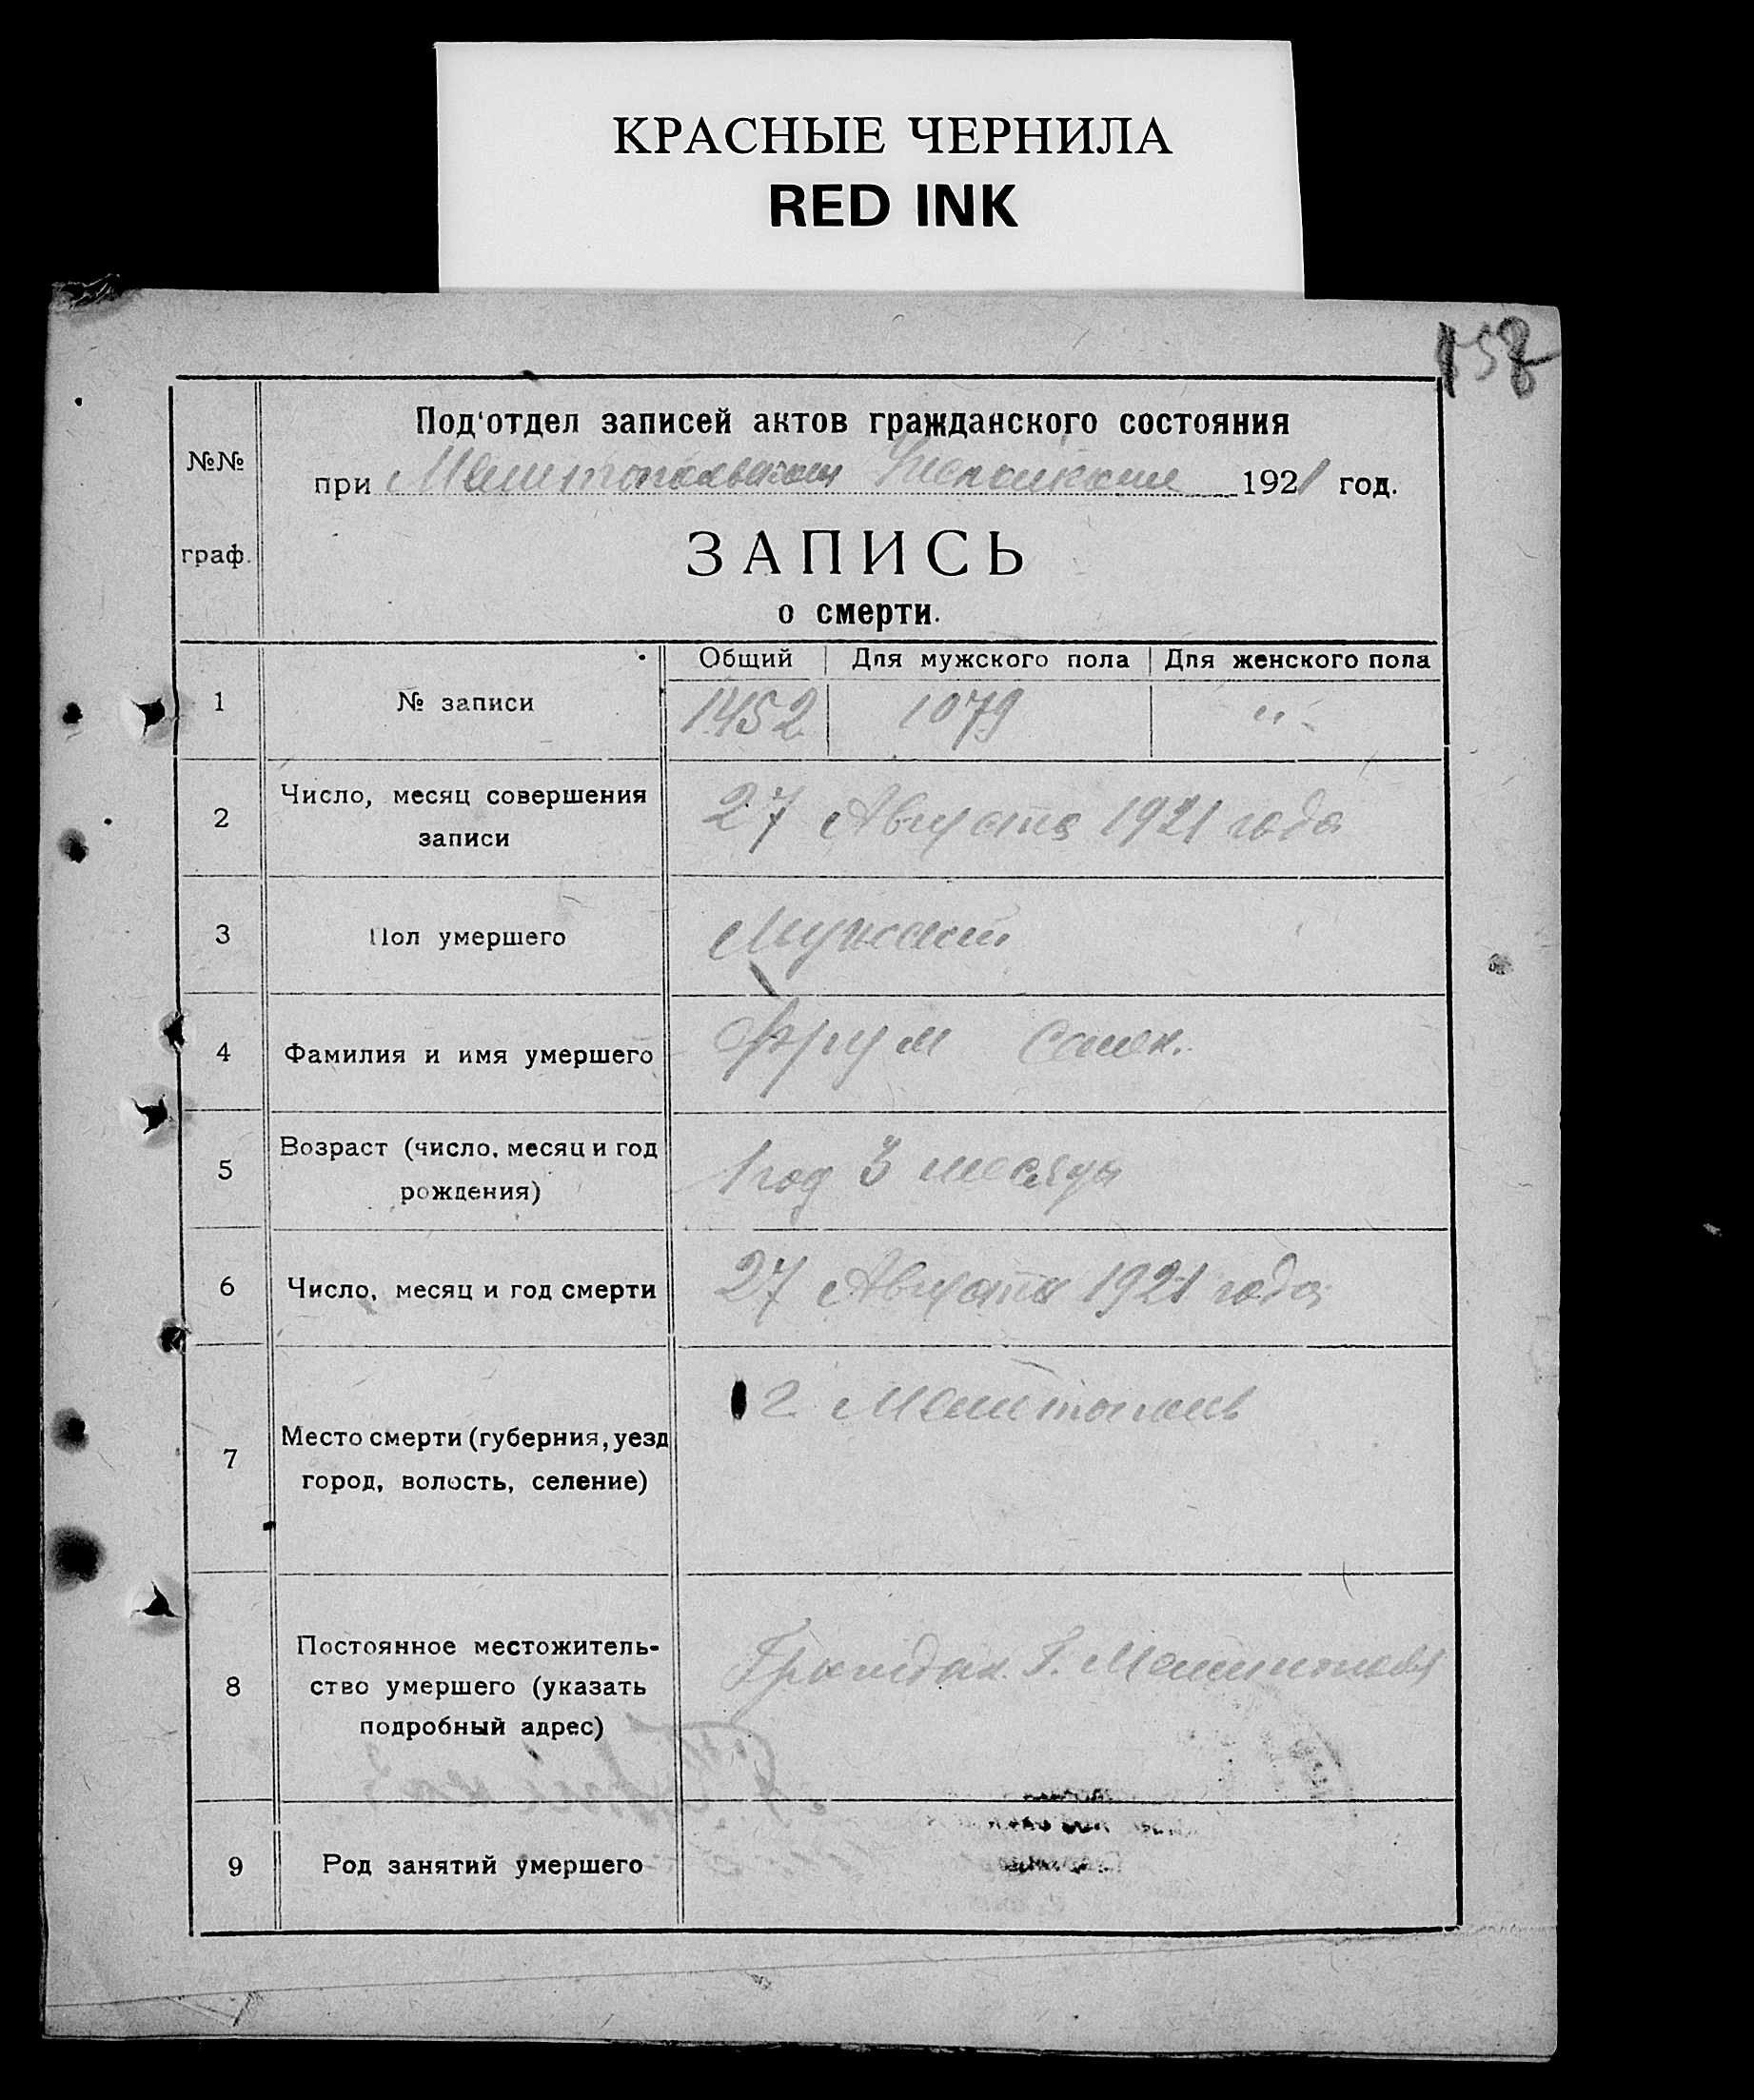 КРАСНЫЕ ЧЕРНИЛА
RED INK
158
Под'отдел записей актов гражданского состояния
№№ при Мелитопольском 1921 год.
граф. ЗАПИСЬ
о смерти.
Общий Для мужского пола Для женского пола
1 № записи 1452 1079 "
2 Число, месяц совершения записи 27 Августа 1921 года
3 Пол умершего Мужской
4 Фамилия и имя умершего Фрум Семен.
5 Возраст (число, месяц и год рождения) 1 год 3 месяца
6 Число, месяц и год смерти 27 Августа 1921 года
7 Место смерти (губерния, уезд город, волость, селение) г. Мелитополь
8 Постоянное местожитель-
ство умершего (указать подробный адрес) Граждан. Г. Мелитополя
9 Род занятий умершего